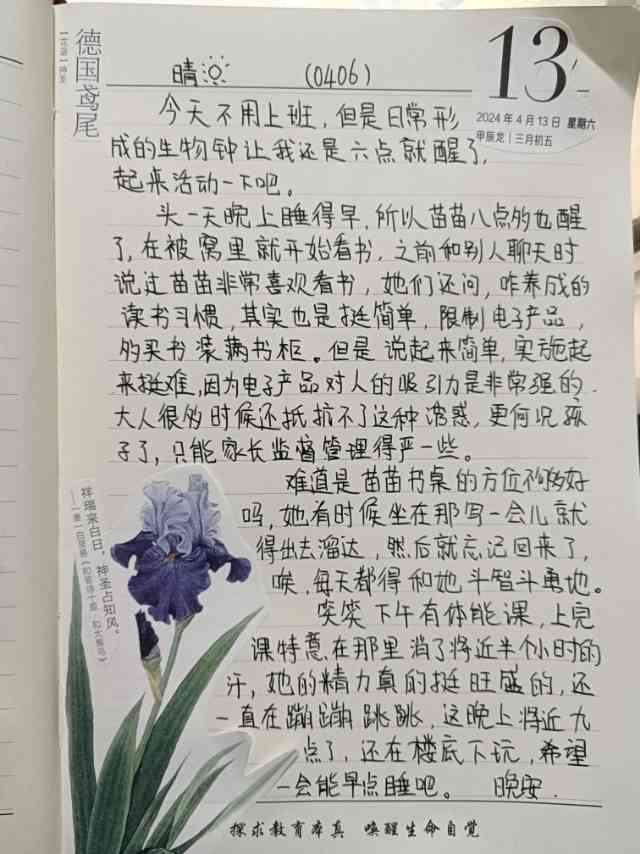 德国鸢尾
【花语】神圣
13
2024年4月13日 星期六
甲辰龙|三月初五
晴 (0406)
今天不用上班，但是日常形
成的生物钟让我还是六点就醒了，
起来活动一下吧。
头一天晚上睡得早，所以苗苗八点多也醒
了，在被窝里就开始看书，之前和别人聊天时
说过苗苗非常喜欢看书，她们还问，咋养成的
读书习惯，其实也是挺简单，限制电子产品，
多买书装满书柜。但是说起来简单，实施起
来挺难，因为电子产品对人的吸引力是非常强的.
大人很多时候还抵抗不了这种诱惑，更何况孩
子了，只能家长监督管理得严一些。
难道是苗苗书桌的方位不够好
吗，她有时候坐在那写一会儿就
得出去溜达，然后就忘记回来了，
唉，每天都得和她斗智斗勇地。
笑笑下午有体能课，上完
课特意在那里消了将近半个小时的
汗，她的精力真的挺旺盛的，还
一直在蹦蹦跳跳，这晚上将近九
点了，还在楼底下玩，希望
一会能早点睡吧。 晚安.
祥瑞来白日，神圣占知风。
——唐|白居易《和答诗十首·和大觜乌》
探求教育本真 唤醒生命自觉